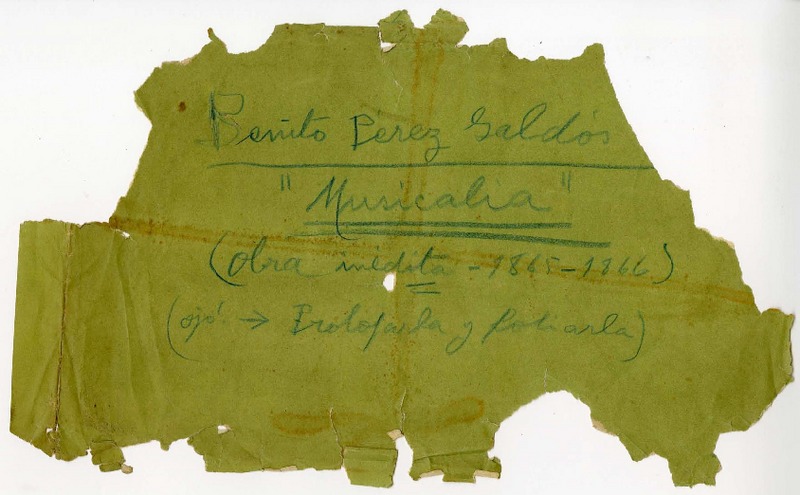 Benito Pérez Galdós
"Musicalia"
(obra inédita - 1865-1866)
(ojo → y